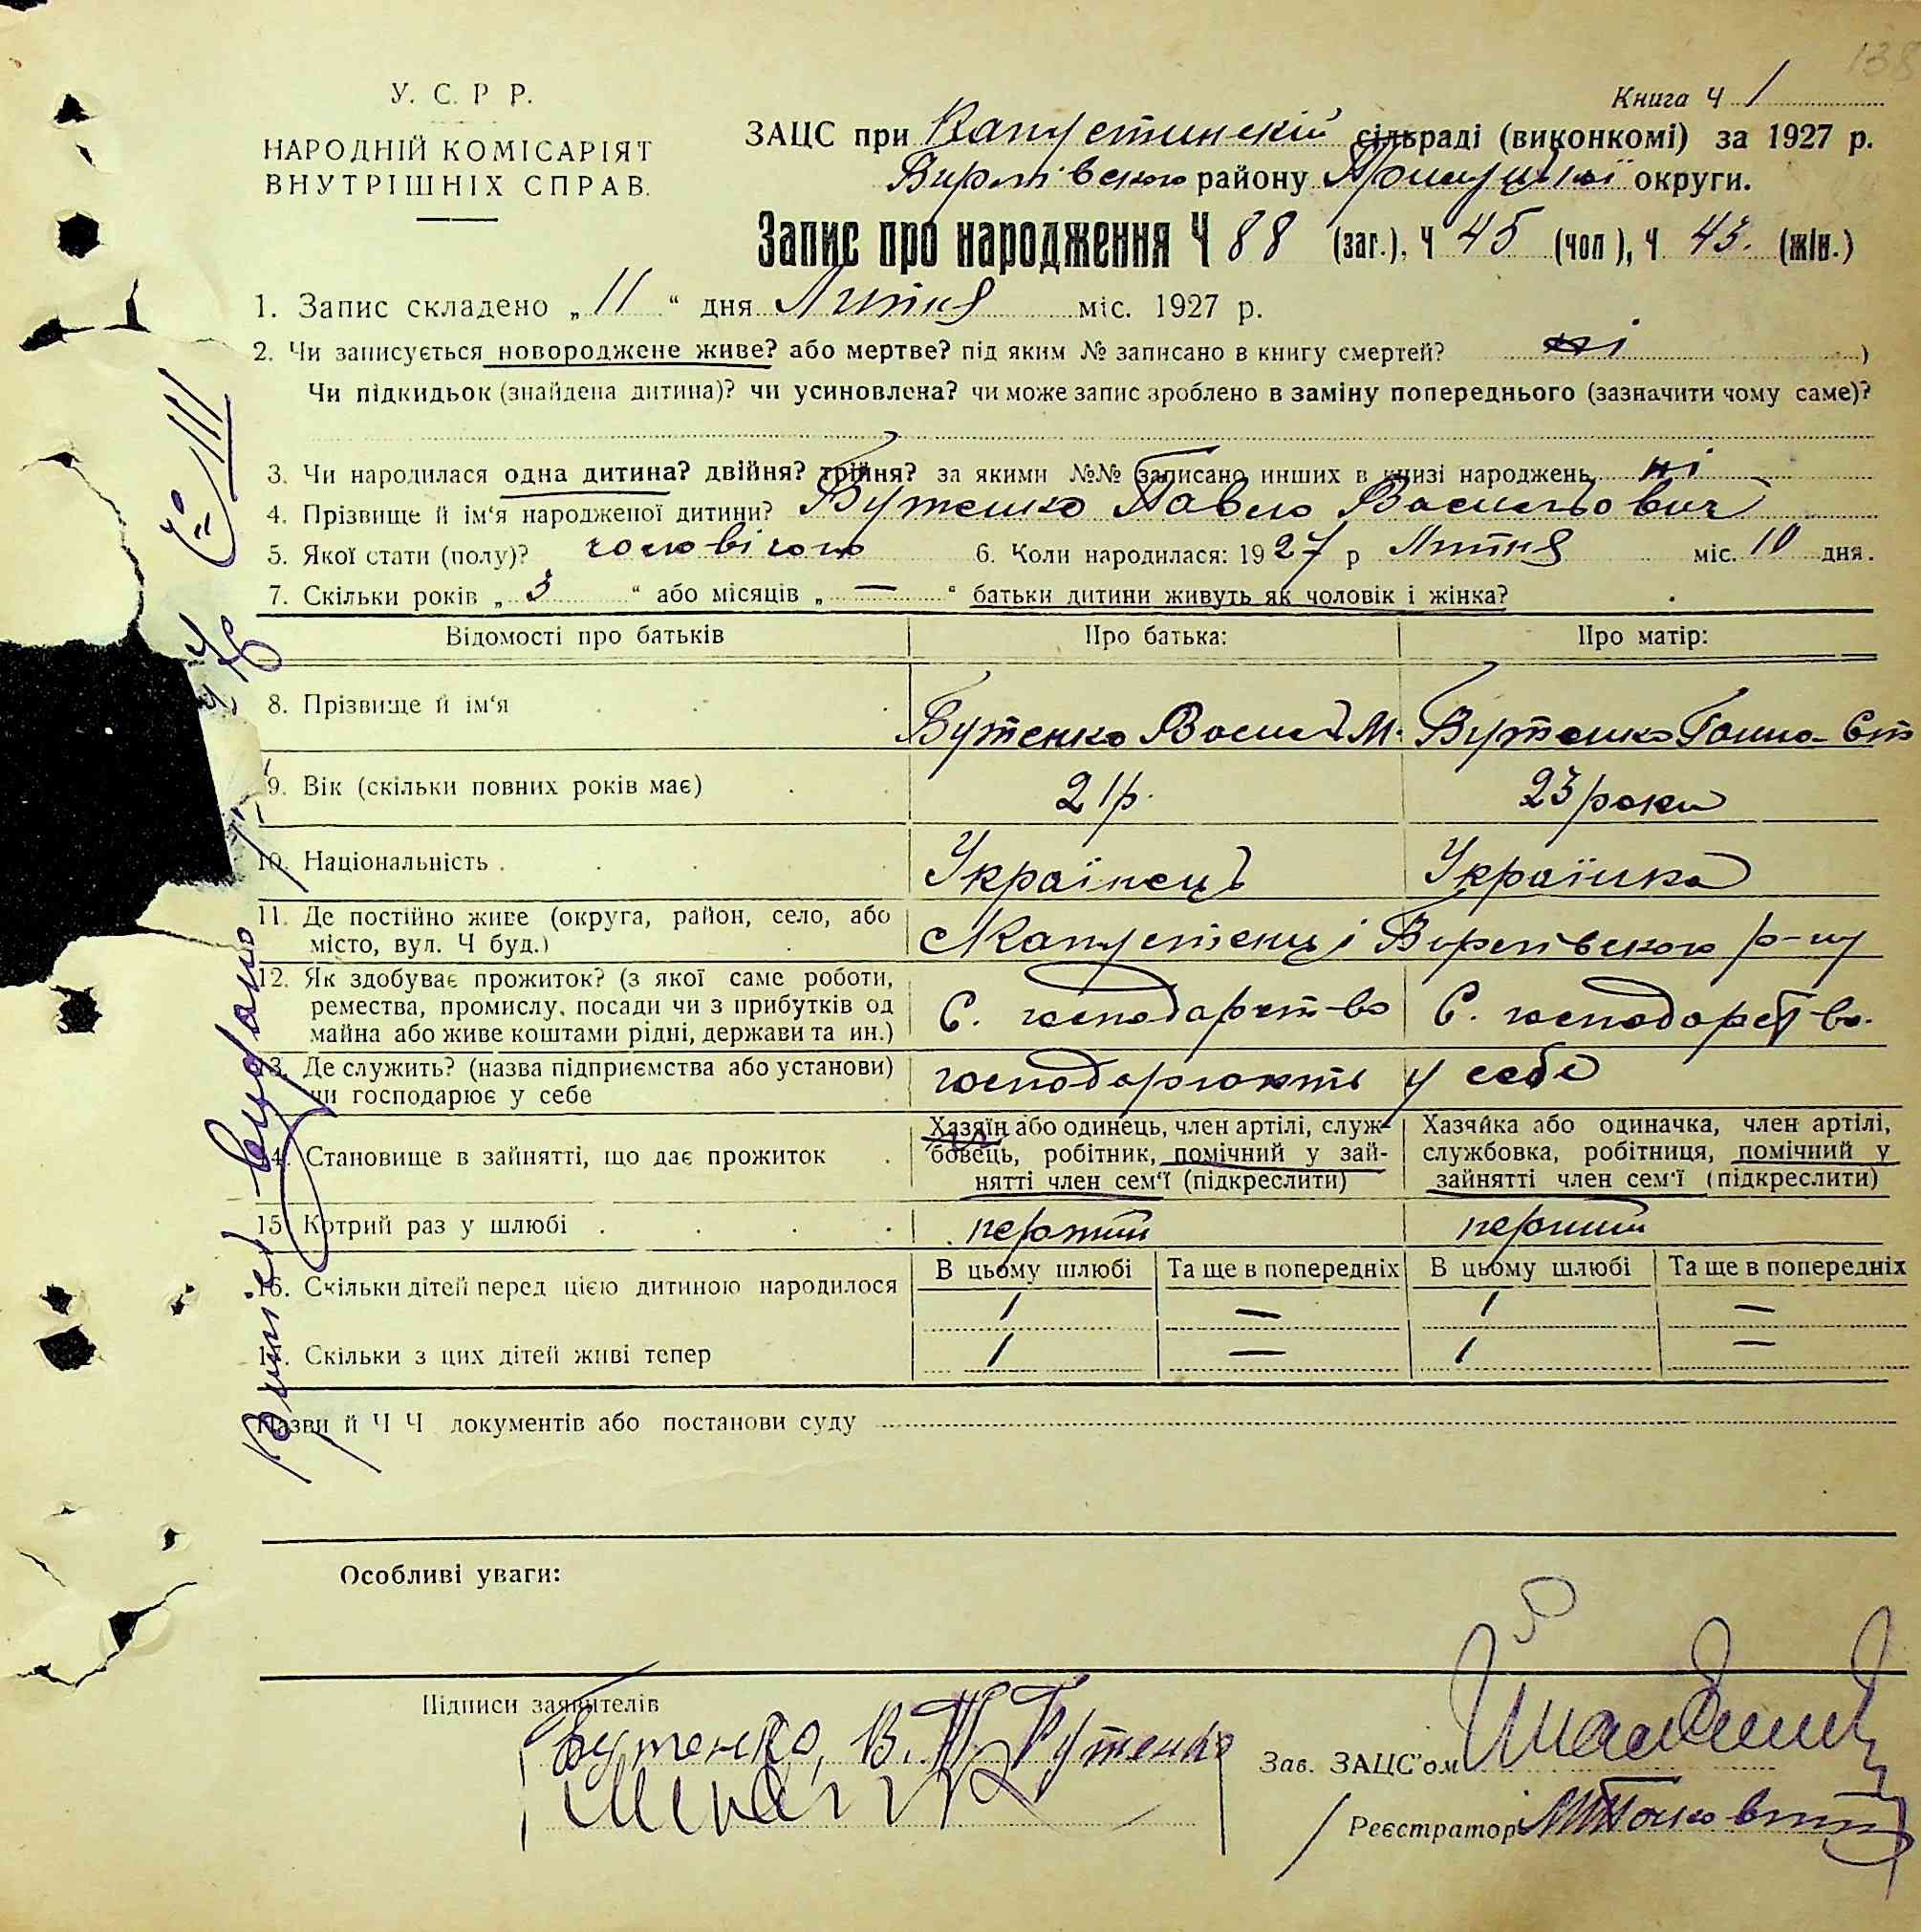 138
Книга Ч 1
У. С. Р Р.
НАРОДНІЙ КОМІСАРІЯТ
ВНУТРІШНІХ СПРАВ.
ЗАЦС при Капустинскій сільраді (виконкомі) за 1927 р.
району Прилуцької округи.
Запис про народження Ч 88 (заг.), Ч 45 (чол), Ч 43. (жін.)
1. Запис складено „ 11 “ дня Липня міс. 1927 р.
2. Чи записується новороджене живе? або мертве? під яким № записано в книгу смертей? ні )
Чи підкидьок (знайдена дитина)? чи усиновлена? чи може запис зроблено в заміну попереднього (зазначити чому саме)?
3. Чи народилася одна дитина? двійня? трійня? за якими №№ записано инших в книзі народжень ні
4. Прізвище й ім‘я народженої дитини? Бутенко Павло Васильович
5. Якої стати (полу)? чоловічого 6. Коли народилася: 1927 р Липня міс. 10 дня.
7. Скільки років „ 3 “ або місяців „ — “ батьки дитини живуть як чоловік і жінка?
Відомості про батьків Про батька: Про матір:
8. Прізвище й ім‘я Бутенко Василь М. Бутенко Ганна Ст
9. Вік (скільки повних років має) 21р. 23 роки
10. Національність . Українець Українка
11. Де постійно живе (округа, район, село, або
місто, вул. Ч буд.) Капустенці р-ну
12. Як здобуває прожиток? (з якої саме роботи,
ремества, промислу, посади чи з прибутків од
майна або живе коштами рідні, держави та ин.) С. господарство С. господарство.
13. Де служить? (назва підприємства або установи)
чи господарює у себе господарюють у себе
14. Становище в зайнятті, що дає прожиток
Хазяїн або одинець, член артілі, служ-
бовець, робітник, помічний у зай-
нятті член сем‘ї (підкреслити)
Хазяйка або одиначка, член артілі,
службовка, робітниця, помічний у
зайнятті член сем‘ї (підкреслити)
15. Котрий раз у шлюбі перший перший
В цьому шлюбі Та ще в попередніх В цьому шлюбі Та ще в попередніх
16. Скільки дітей перед цією дитиною народилося 1 — 1 —
17. Скільки з цих дітей живі тепер 1 — 1 —
Назви й Ч Ч документів або постанови суду
Особливі уваги:
Підписи заявителів
Бутенко, В. Бутенко
Зав. ЗАЦС'ом
Реєстратор
Витяг видано